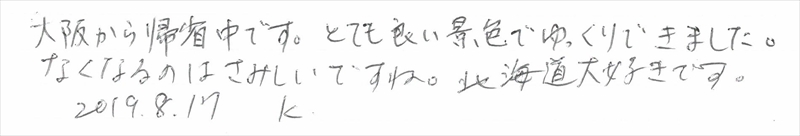 大阪から帰省中です。とても良い景色でゆっくりできました。
なくなるのはさみしいですね。北海道大好きです。
2019.8.17 K.